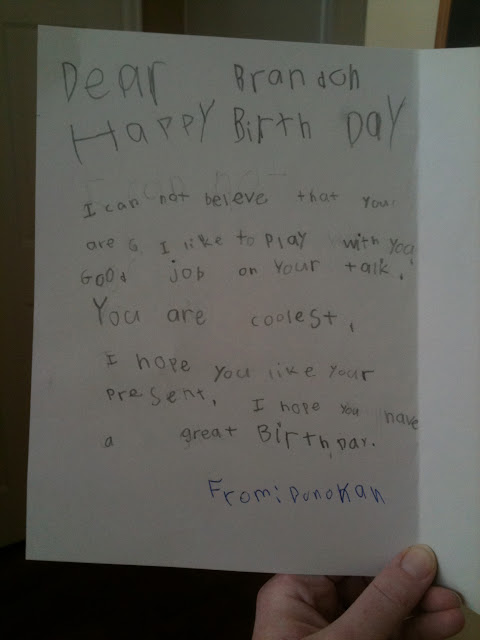 Dear Brandon
HAPPY Birth DAY
I can not beleve that your
are 6 I like to play with you
GOOd job on your talk.
You are coolest,
I hope you like your
present, I hope you have
a great Birthday.
From: Donovan